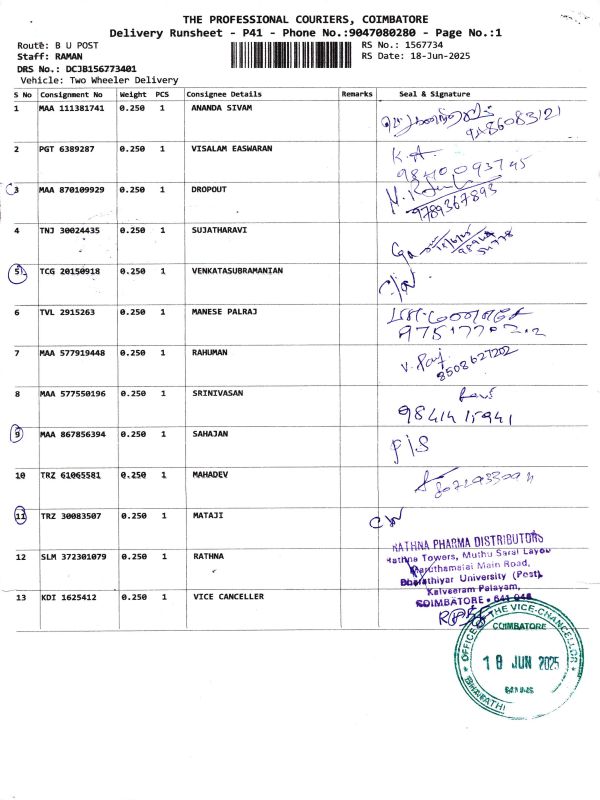 THE PROFESSIONAL COURIERS, COIMBATORE
Delivery Runsheet - P41 - Phone No.:9047080280 - Page No.:1
Route: B U POST RS No.: 1567734
Staff: RAMAN RS Date: 18-Jun-2025
DRS No.: DCJB156773401
Vehicle: Two Wheeler Delivery
S No Consignment No Weight PCS Consignee Details Remarks Seal & Signature
1 MAA 111381741 0.250 1 ANANDA SIVAM
9486083121
2 PGT 6389287 0.250 1 VISALAM EASWARAN K.A.
3 MAA 870109929 0.250 1 DROPOUT
9789367893
4 TNJ 30024435 0.250 1 SUJATHARAVI
5 TCG 20150918 0.250 1 VENKATASUBRAMANIAN
6 TVL 2915263 0.250 1 MANESE PALRAJ
7 MAA 577919448 0.250 1 RAHUMAN
8508627202
8 MAA 577550196 0.250 1 SRINIVASAN
9841415941
9 MAA 867856394 0.250 1 SAHAJAN P/S
10 TRZ 61065581 0.250 1 MAHADEV
11 TRZ 30083507 0.250 1 MATAJI
12 SLM 372301079 0.250 1 RATHNA
RATHNA PHARMA DISTRIBUTORS
Rathna Towers, Muthu Saral Layou
Maruthamalai Main Road,
Bharathiyar University (Post),
Kalveeram Palayam,
COIMBATORE - 641 046
13 KDI 1625412 0.250 1 VICE CANCELLER
OFFICE OF THE VICE-CHANCELLOR
COIMBATORE
18 JUN 2025